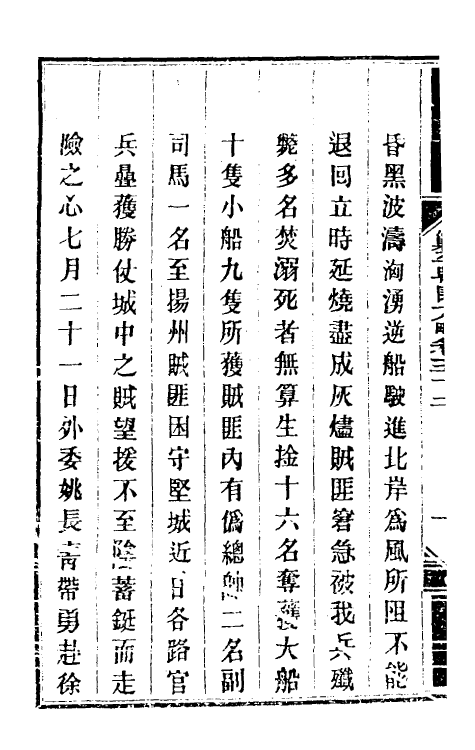 昏黑波濤洶湧逆船駛進北岸爲風所阻不能
退回立時延燒盡成灰燼賊匪窘急被我兵殲
斃多名焚溺死者無算生捦十六名奪獲大船
十隻小船九隻所獲賊匪內有僞總帥二名副
司馬一名至揚州賊匪困守堅城近日各路官
兵壘獲勝仗城中之賊望援不至陰蓄鋌而走
險之心七月二十一日外委姚長青帶勇赴徐